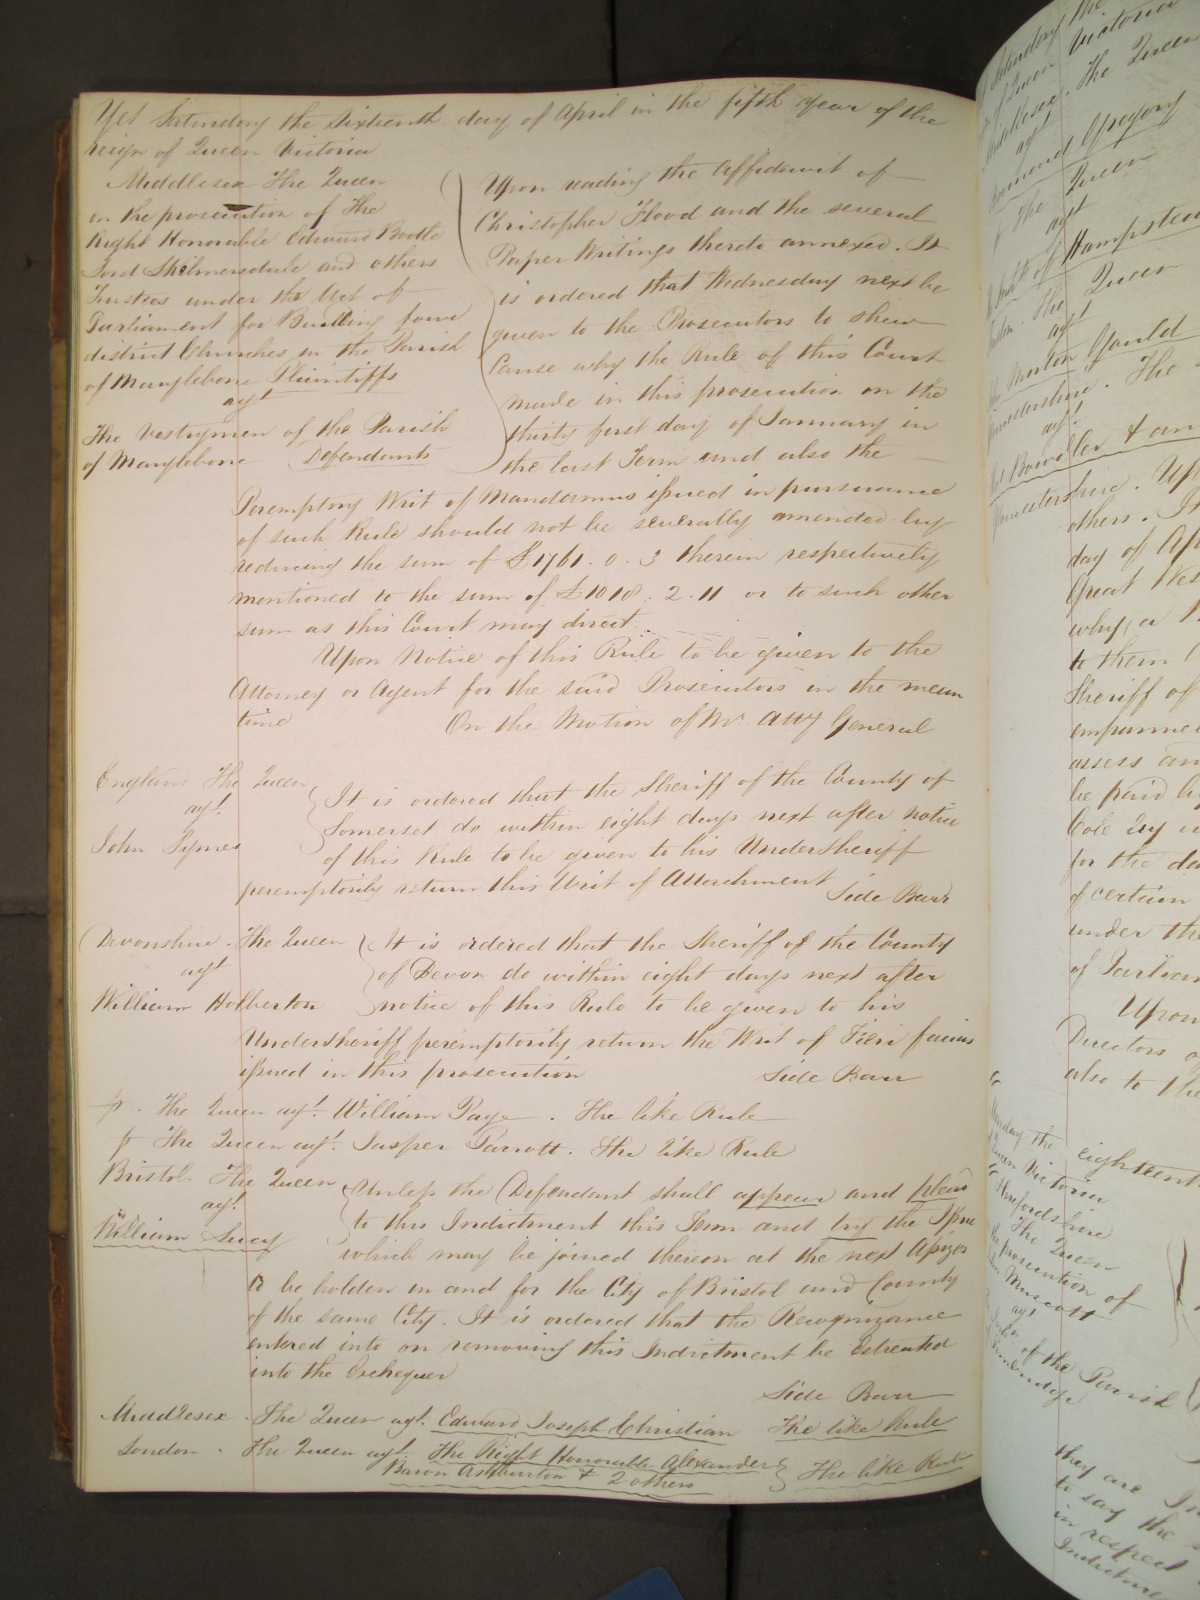 Yet Saturday the Sixteenth day of April in the fifth year of the
reign of Queen Victoria
Middlesex The Queen
on the prosecution of The
Right Honorable Edward Bootle
Lord Skelmersdale and others
Trustees under the Act of
Parliament for Building four
district Churches in the Parish
of Marylebone Plaintiffs
agt
The Vestrymen of the Parish
of Marylebone Defendants
Upon reading the Affidavit of
Christopher Flood and the several
Paper Writings thereto annexed. It
is ordered that Wednesday next be
given to the Prosecutors to shew
Cause why the Rule of this Court
made in this prosecution on the
thirty first day of January in
the last Term and also the
Peremptory Writ of Mandamus issued in pursuance
of such Rule should not be severally amended by
reducing the sum of £1761. 0. 3 therein respectively
mentioned to the sum of £1010. 2. 11 or to such other
sum as this Court may direct
Upon Notice of this Rule to be given to the
Attorney or Agent for the said Prosecutors in the mean
time On the Motion of Mr. Atty General
England The Queen
agt.
John Symes
It is ordered that the Sheriff of the County of
Somerset do within eight days next after notice
of this Rule to be given to his UnderSheriff
peremptorily return this Writ of Attachment Side Barr
Devonshire. The Queen
agt
William Holberton
It is ordered that the Sheriff of the County
of Devon do within eight days next after
notice of this Rule to be given to his
UnderSheriff peremptorily return the Writ of Fieri facias
issued in this prosecution Side Barr
The Queen agt. William Page. The like Rule
The Queen agt. Jasper Parrott. The like Rule
Bristol. The Queen
agt.
William Lucy
Unless the Defendant shall appear and plead
to this Indictment this Term and try the Issue
which may be joined thereon at the next Assizes
to be holden in and for the City of Bristol and County
of the same City. It is ordered that the Recognizance
entered into on removing this Indictment be Estreated
into the Exchequer
Side Barr
Middlesex. The Queen agt. Edward Joseph Christian The like Rule
London. The Queen agt. The Right Honorable Alexander
Baron Ashburton & 2 others The like Rule
Saturday the
Queen Victoria
Middlesex. The Queen
agt
Gregory
The Queen
agt
of Hampstead
The Queen
agt
Merton Gauld
The
agt.
others. I
day of Ap
Great Wes
why a
to them
Sheriff of
empannel
assess an
be paid by
Cole
for the da
of certain
under the
of Parliam
Upon
Directors
also to the
Monday the eighteenth
Queen Victoria
Herefordshire
The Queen
the prosecution of
Muscott
agt
of the Parish
they are In
to say the
in respect
Indictme